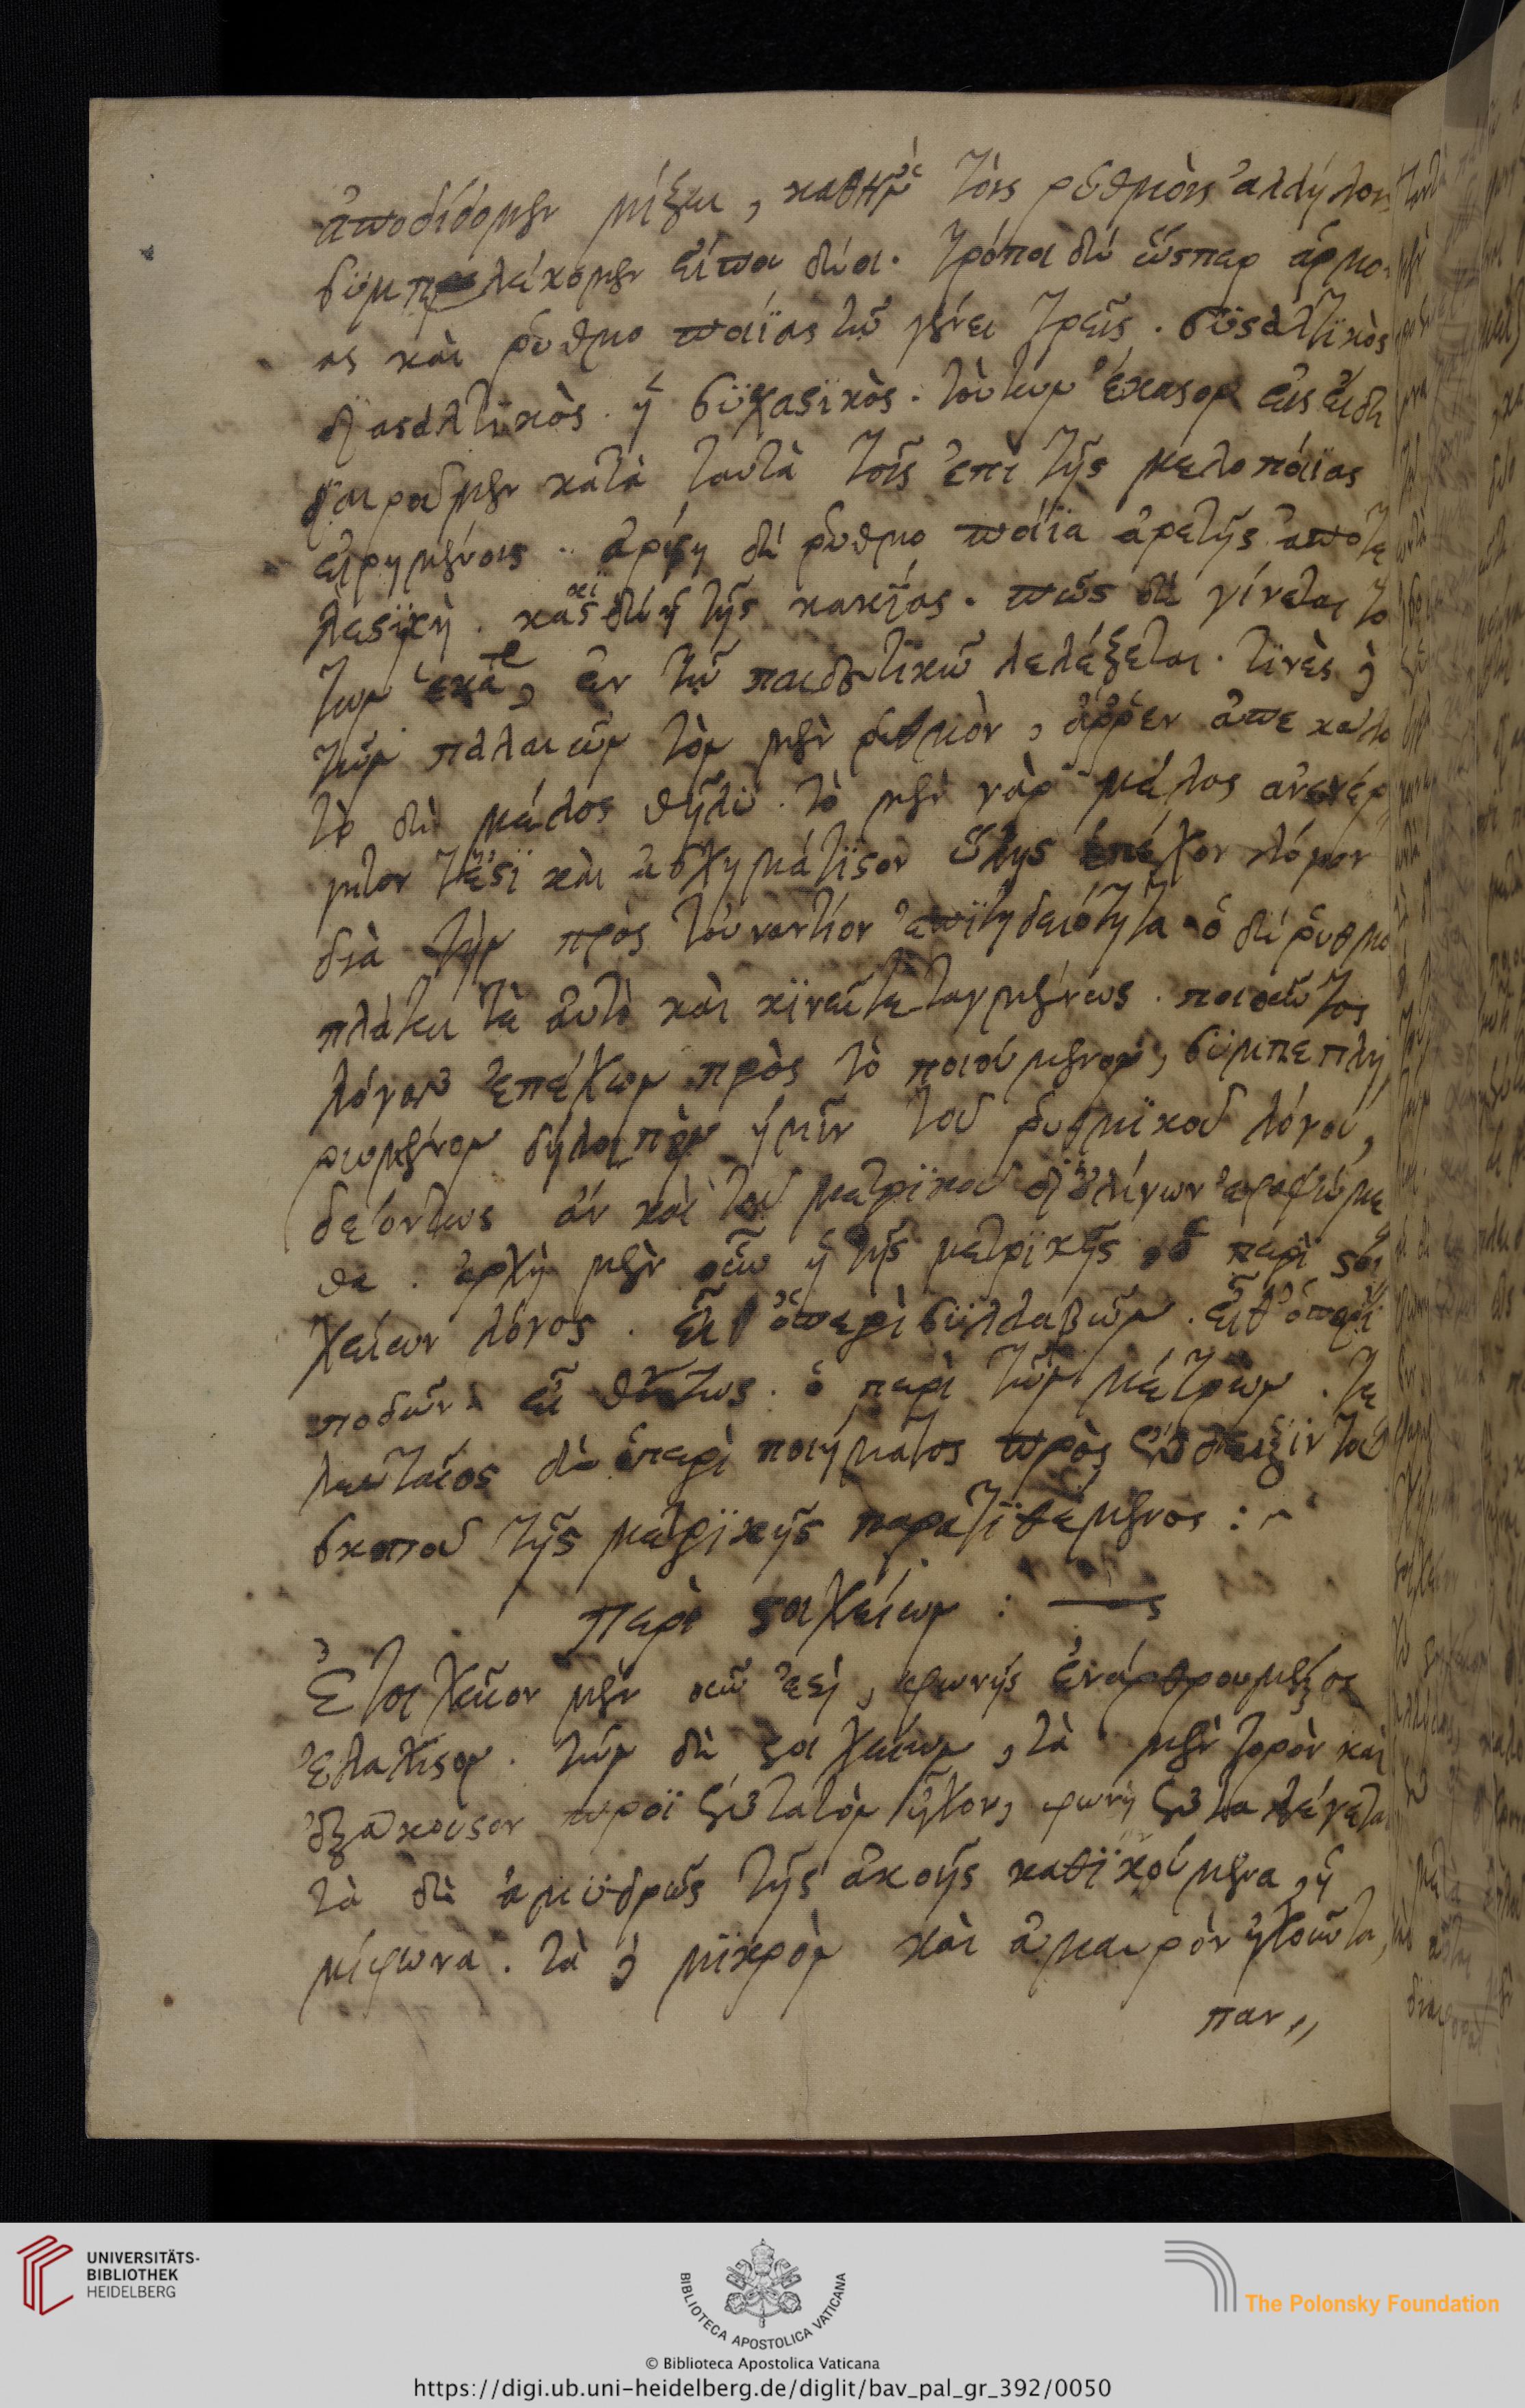 ἀποδίδομεν μίξει, καθʼ ἣν τὸις ρυθμὸις ἀλλήλοις
συμπλέκομεν εἴποι δέοι. τρόποι δὲ ὥσπερ ἁρμο
ας και ῥυθμο ποιΐας τῶ γένει τρεῖς. συσαλτϊκὸς
διασαλτικὸς. ἡσυχασϊκὸς. τούτων ἕκασον εἰς εἴδη
διαιροῦμεν κατὰ ταυτὰ τοῖς ἐπὶ τῆς μελοποιΐας
εἰρημένοις. ἀρίση δὲ ῥυθμο ποιΐα ἀρετῆς ἀποτε
λεσϊκὴ. κακῒς δὲ ἡ τῆς κακΐας. πῶς δὲ γίνεται το
των ἑκά, ἐν τῶ παιδευτικῶ λελέξεται. τϊνὲς δὲ
τῶν παλαιῶν τὸν μὲν ρυθμὸν, ἄῤῥεν ἀπε κάλο
τὸ δὲ μέλος θῆλυ. τὸ μὲν γὰρ μέλος ἀνενέρ
γητον τἐσὶ και ἀσχημάτϊσον ὕλης ἐπέχον λόγον
διὰ τὴν πρὸς τουναντίον ἐπϊτηδειότητα ὁ δὲ ῥυθμο
πλάττει τὲ ἀυτὸ και κϊνεῖ τεταγμένως. ποιοῦντος
λόγον ἐπέχων πρὸς τὸ ποιούμενον, συμπεπλη
ρωμένου δη λοιπὸν ἡμῖν τοῦ ῥυθμϊκοῦ λόγου,
δεόντως ἀν και τοῦ μετρϊκοῦ δϊ ὀλίγων ἐφαψώμε
θα. ἀρχὴ μὲν οὖν ἡ τῆς μετρϊκῆς, ὁ περὶ σοι
χείων λόγος. εἶθʼ ὁ περὶ συλλαβῶν. εἶθʼ ὁ περὶ
ποδῶν. εἶ θʼούτως. ὁ περὶ τῶν μέτρων. τε
λευταῖος δὲ ὁ περὶ ποιήματος πρὸς ἔνδειξϊν τοῦ
σκοποῦ τῆς μετρϊκῆς παρατϊθέμενος :~
περὶ σοιχείων :
Στοιχεῖον μὲν οὖν ἐσὶ, φωνῆς ἐνάρθρου μέρος
ἐλάχισον. τῶν δὲ σοιχείων, τὰ μὲν τορὸν και
ἐξάκουσον προϊ εύτατὸν ἦχον, φωνήευτα λέγεται
τὰ δὲ ἀμυδρῶς τῆς ἀκοῆς καθϊκούμενα, ἡ
μίφωνα. τὰ δὲ μϊκρὸν και ἀμαυρὸν ἠχοῦντα,
παν,,
UNIVERSITÄTS-
BIBLIOTHEK
HEIDELBERG
BIBLIOTECA APOSTOLICA VATICANA
The Polonsky Foundation
© Biblioteca Apostolica Vaticana
https://digi.ub.uni-heidelberg.de/diglit/bav_pal_gr_392/0050